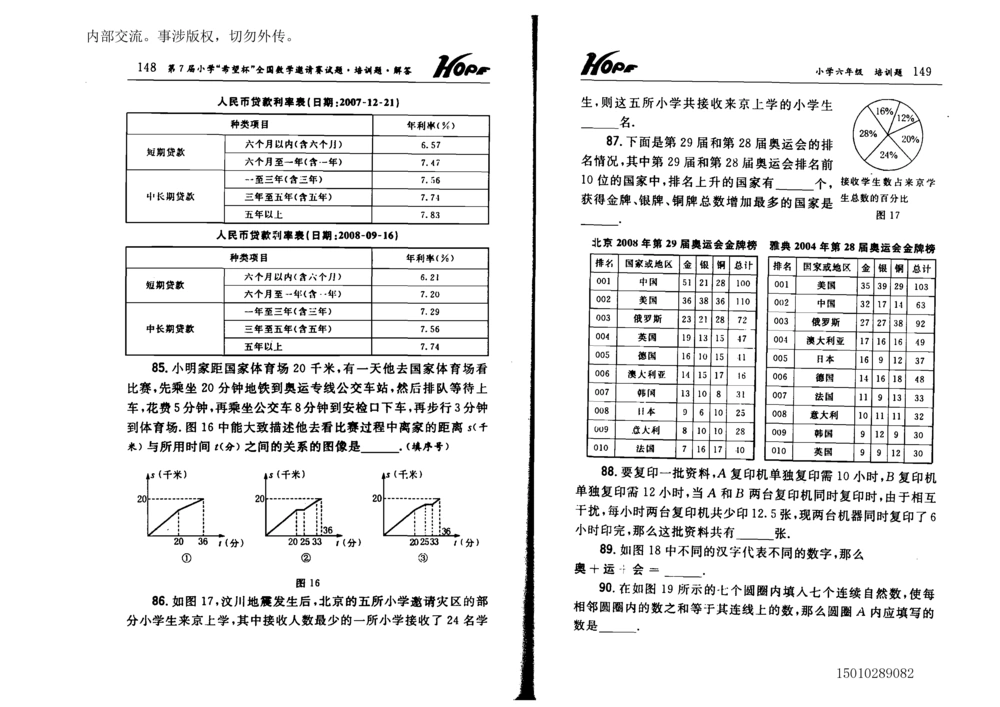 内部交流。事涉版权，切勿外传。
148 第7届小学“希望杯”全国数学邀请赛试题·培训题·解答 HOPE
人民币贷款利率表(日期:2007-12-21)
种类项目 年利率(%)
短期贷款 六个月以内(含六个月) 6.57
六个月至一年(含一年) 7.47
中长期贷款 一至三年(含三年) 7.56
三年至五年(含五年) 7.74
五年以上 7.83
人民币贷款利率表(日期:2008-09-16)
种类项目 年利率(%)
短期贷款 六个月以内(含六个月) 6.21
六个月至一年(含一年) 7.20
中长期贷款 一年至三年(含三年) 7.29
三年至五年(含五年) 7.56
五年以上 7.74
85. 小明家距国家体育场 20 千米,有一天他去国家体育场看
比赛,先乘坐 20 分钟地铁到奥运专线公交车站,然后排队等待上
车,花费 5 分钟,再乘坐公交车 8 分钟到安检口下车,再步行 3 分钟
到体育场. 图 16 中能大致描述他去看比赛过程中离家的距离 s(千
米)与所用时间 t(分)之间的关系的图像是______.(填序号)
s(千米) s(千米) s(千米)
20 20 20
20 36 t(分) 20 25 33 36 t(分) 20 25 33 36 t(分)
① ② ③
图 16
86. 如图 17,汶川地震发生后,北京的五所小学邀请灾区的部
分小学生来京上学,其中接收人数最少的一所小学接收了 24 名学
HOPE 小学六年级 培训题 149
生,则这五所小学共接收来京上学的小学生
______名.
16% 12% 20% 24% 28%
接收学生数占来京学
生总数的百分比
图 17
87. 下面是第 29 届和第 28 届奥运会的排
名情况,其中第 29 届和第 28 届奥运会排名前
10 位的国家中,排名上升的国家有______个,
获得金牌、银牌、铜牌总数增加最多的国家是
______.
北京 2008 年第 29 届奥运会金牌榜
排名 国家或地区 金 银 铜 总计
001 中国 51 21 28 100
002 美国 36 38 36 110
003 俄罗斯 23 21 28 72
004 英国 19 13 15 47
005 德国 16 10 15 41
006 澳大利亚 14 15 17 46
007 韩国 13 10 8 31
008 日本 9 6 10 25
009 意大利 8 10 10 28
010 法国 7 16 17 40
雅典 2004 年第 28 届奥运会金牌榜
排名 国家或地区 金 银 铜 总计
001 美国 35 39 29 103
002 中国 32 17 14 63
003 俄罗斯 27 27 38 92
004 澳大利亚 17 16 16 49
005 日本 16 9 12 37
006 德国 14 16 18 48
007 法国 11 9 13 33
008 意大利 10 11 11 32
009 韩国 9 12 9 30
010 英国 9 9 12 30
88. 要复印一批资料,A 复印机单独复印需 10 小时,B 复印机
单独复印需 12 小时,当 A 和 B 两台复印机同时复印时,由于相互
干扰,每小时两台复印机共少印 12.5 张,现两台机器同时复印了 6
小时印完,那么这批资料共有______张.
89. 如图 18 中不同的汉字代表不同的数字,那么
奥＋运＋会＝______.
90. 在如图 19 所示的七个圆圈内填入七个连续自然数,使每
相邻圆圈内的数之和等于其连线上的数,那么圆圈 A 内应填写的
数是______.
15010289082